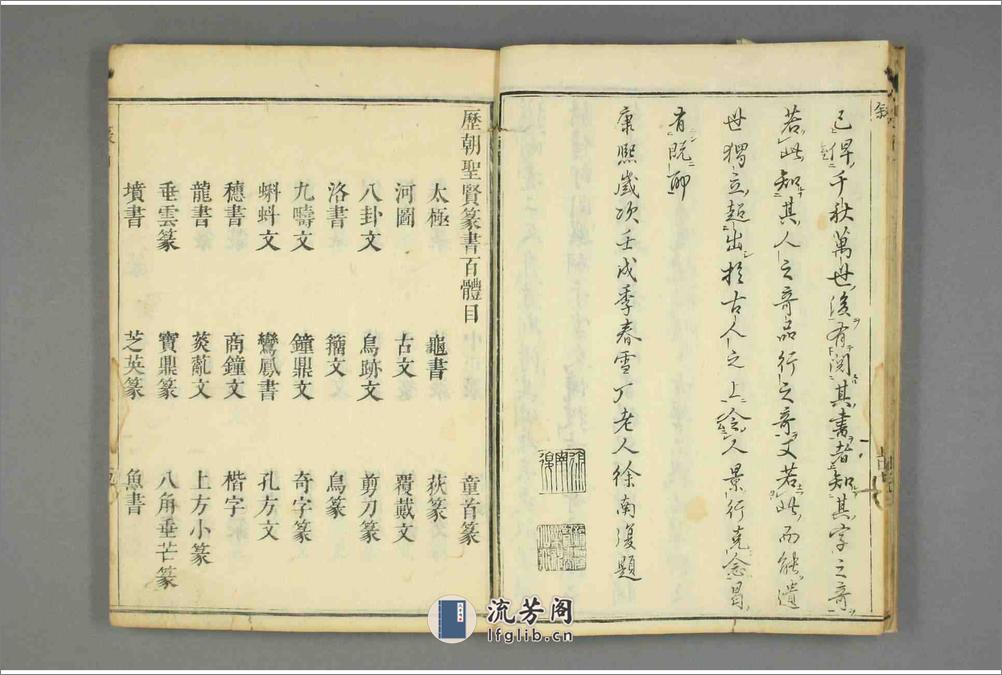 已俾千秋萬世後有閱其書者知其字之奇
若此知其人之奇品行之奇又若此而能遺
世獨立超出於古人之上念人景行克念曷
有既耶
康熙歲次壬戌季春雪广老人徐南復題
歷朝聖賢篆書百體目 童首篆
太極 龜書 荻篆
河圖 古文 覆戴文
八卦文 鳥跡文 剪刀篆
洛書 籀文 鳥篆
九疇文 鐘鼎文 奇字篆
蝌蚪文 鸞鳳書 孔方文
穗書 商鐘文 楷字
龍書 上方小篆
垂雲篆 寶鼎篆 八角垂芒篆
墳書 芝英篆 魚書
流芳阁
lfglib.cn